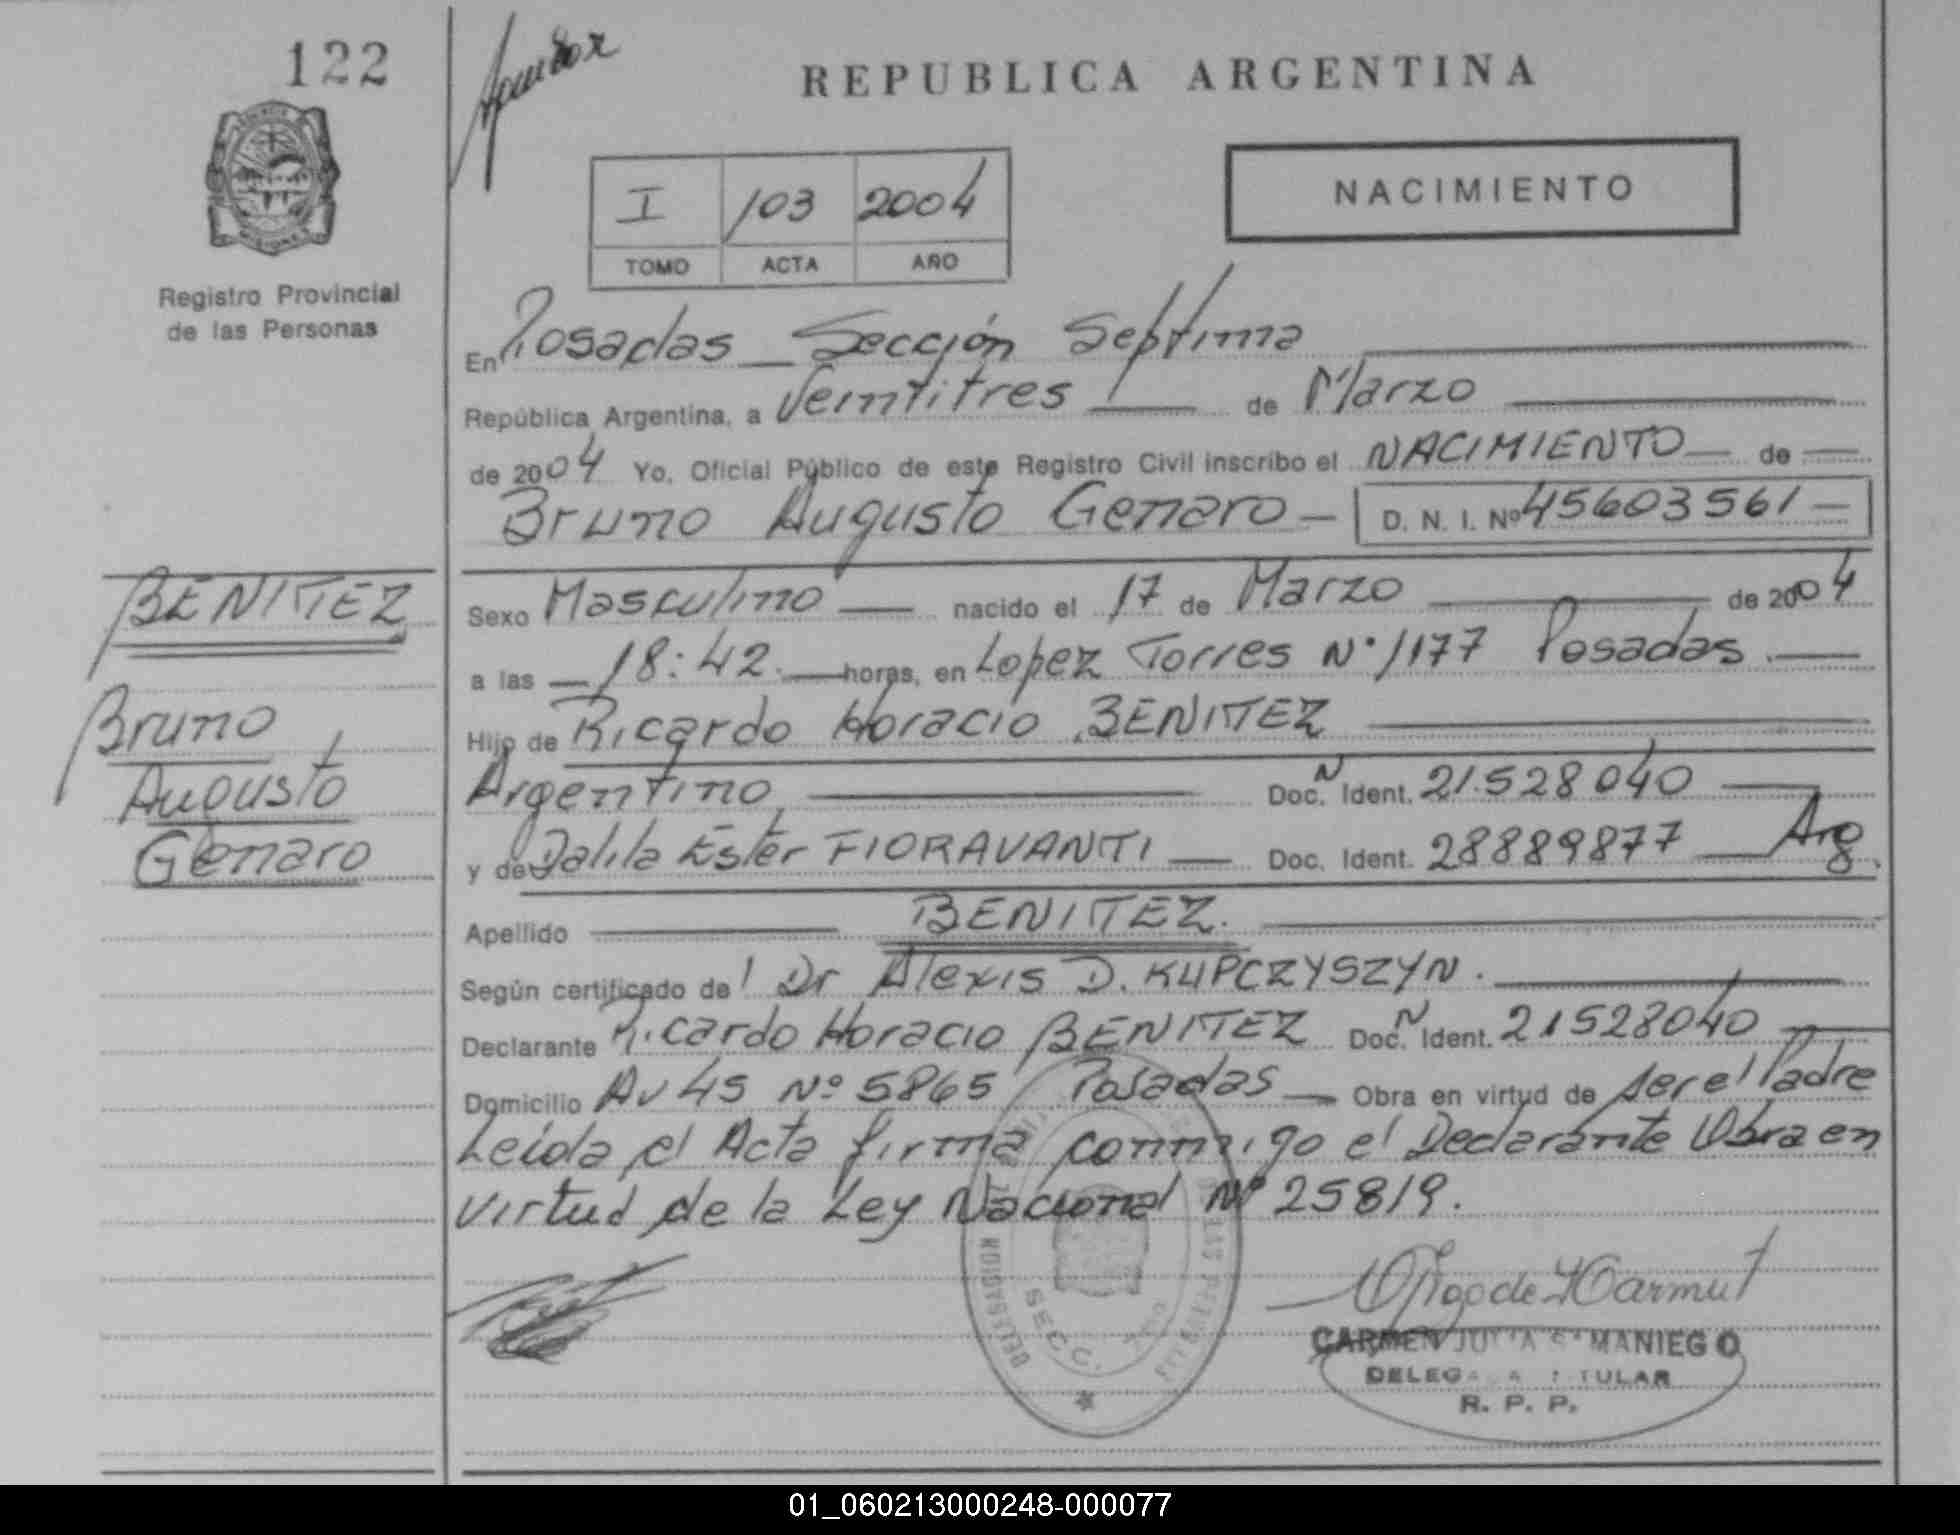 122
REPUBLICA ARGENTINA
PROVINCIA
MISIONES
Registro Provincial
de las Personas
I 103 2004
TOMO ACTA AÑO
NACIMIENTO
En Posadas Sección Septima
República Argentina, a Veintitres de Marzo
de 2004 Yo, Oficial Público de este Registro Civil inscribo el NACIMIENTO de
Bruno Augusto Genaro D. N. I. Nº 45603561
BENITEZ
Bruno
Augusto
Genaro
Sexo Masculino nacido el 17 de Marzo de 2004
a las 18:42 horas, en Lopez Torres Nº 1177 Posadas
Hijo de Ricardo Horacio BENITEZ
Argentino Doc. N Ident. 21.528040
y de Dalila Ester FIORAVANTI Doc. Ident. 28889877 Arg.
Apellido BENITEZ.
Según certificado del Dr Alexis D. KUPCZYSZYN.
Declarante Ricardo Horacio BENITEZ Doc. N Ident. 21528040
Domicilio Av 45 Nº 5865 Posadas Obra en virtud de ser el Padre
Leida el Acta firma conmigo el Declarante Obra en
virtud de la Ley Nacional Nº 25819.
DELEGACION
SECC. 7ma
CARMEN JULIA SAMANIEGO
DELEGADA TITULAR
R. P. P.
01_060213000248-000077